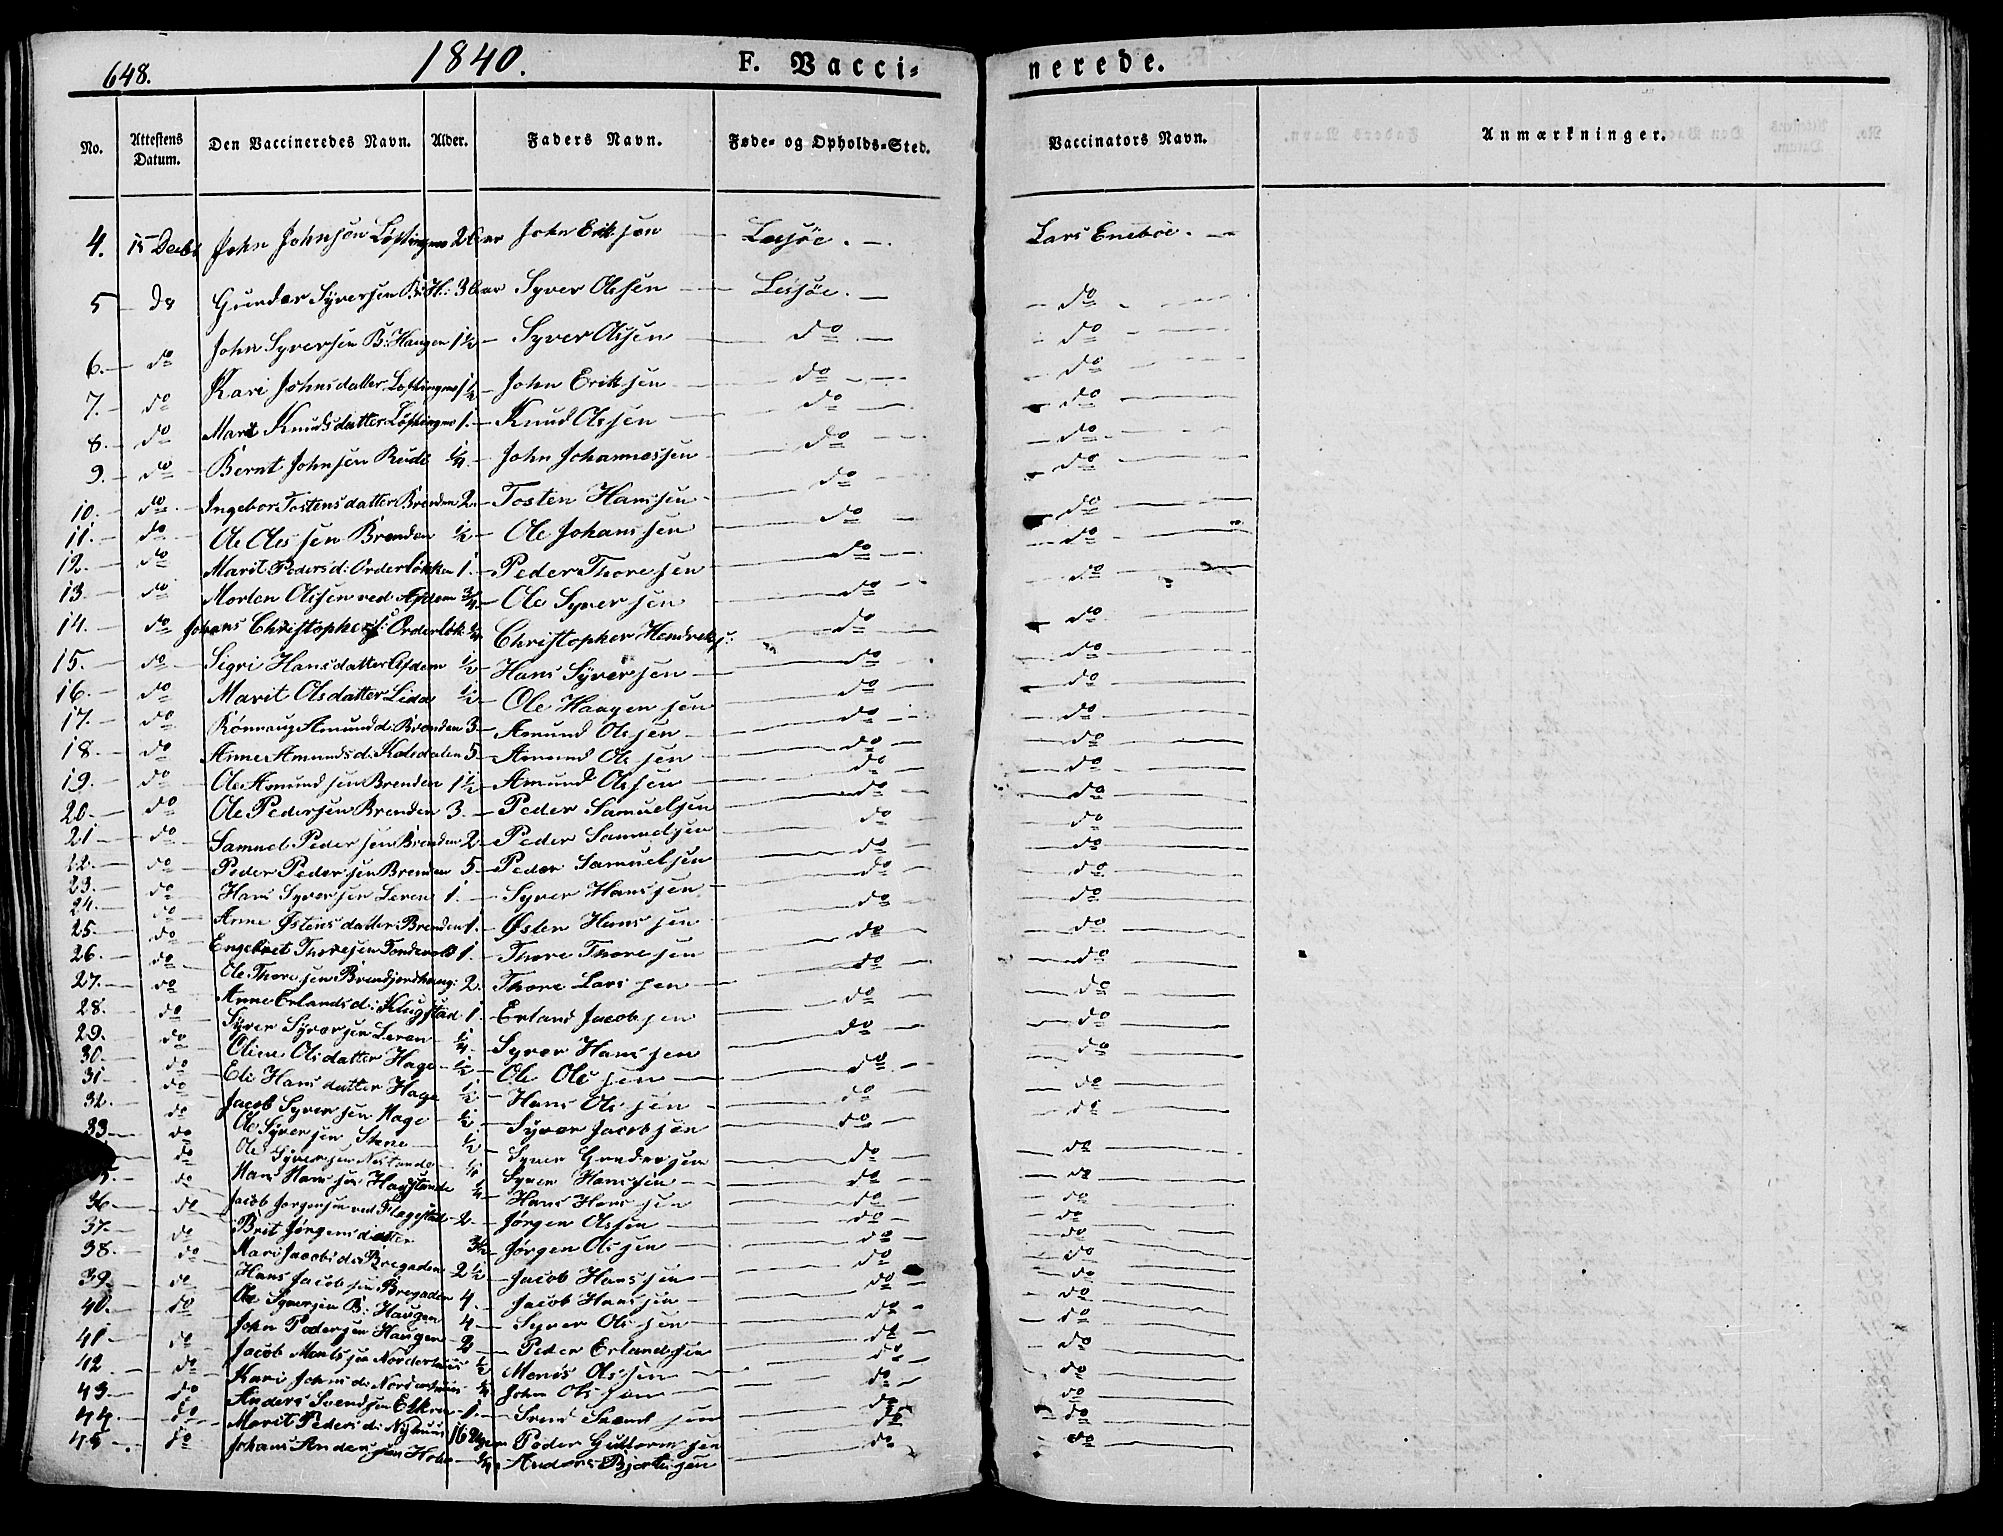 648.
1840.
F. Vacci=
nerede.
No. Attestens Datum. Den Vaccineredes Navn. Alder. Faders Navn. Føde- og Opholds-Sted. Vaccinators Navn. Anmærkninger.
4. 15 Decbr John Johnsen Løftingmo 2 Aar John Eriksen Lesjøe. Lars Enebøe.
5 Do Gunder Syversen B: H: 3 Aar Syver Olssen Lesjøe. do
6. do John Syversen B: Haugen 1½ Syver Olssen do do
7. do Kari Johnsdatter Løftingmo 1½ John Eriksen do do
8. do Marit Knudsdatter Løftingmo 1. Knud Olssen do do
9. do Bernt Johnsen Rude ¼ John Johannessen do do
10. do Ingebor Tostensdatter Brenden 2. Tosten Hanssen do do
11. do Ole Olessen Brenden ½ Ole Johanssen do do
12. do Marit Pedersd: Orderløkken 1. Peder Thoresen do do
13. do Morten Olssen ved Asdem ¾ Ole Syversen do do
14. do Johans Christophers: Orderløk: ¼ Christopher Hendreks: do do
15. do Sigri Hansdatter Asdem ½ Hans Syversen do do
16. do Marit Olsdatter Lidas ½ Ole Haagensen do do
17. do Rønnaug Amundd: Brenden 3 Amund Olssen do do
18. do Anne Amundsd: Koledalen 5 Amund Olssen do do
19. do Ole Amundsen Brenden 1½ Amund Olssen do do
20. do Ole Pedersen Brenden 3. Peder Samuelsen do do
21 do Samuel Pedersen Brenden 2 Peder Samuelsen do do
22. do Peder Pedersen Brenden 5. Peder Samuelsen do do
23. do Hans Syversen Leren 1. Syver Hanssen do do
24. do Anne Østensdatter Brenden 1. Østen Hanssen do do
25. do Engebret Thoresen Tondevold 1. Thore Thoresen do do
26. do Ole Thoresen Brenjordhaug: 2. Thore Larssen do do
27. do Anne Erlandsd: Klugstad 1. Erland Jacobsen do do
28. do Syver Syversen Leren ¼ Syver Hanssen do do
29. do Oline Olsdatter Hage ½ Ole Olssen do do
30. do Eli Hansdatter Hage ½ Hans Olssen do do
31 do Jacob Syversen Hage ½ Syver Jacobsen do do
32. do Ole Syversen Stene ½ Syver Gundersen do do
33 do Ole Syversen ¼ Syver Hanssen do do
do Hans Hanssen ¼ Hans Hanssen do do
5. do Jacob Jørgensen ved Flagestad 2. Jørgen Olssen do do
36 do Brit Jørgensdatter 3½ Jørgen Olssen do do
37. do Mari Jacobsd: Bregaden 2½ Jacob Hanssen do do
38. do Hans Jacobsen Bregaden 4. Jacob Hanssen do do
39. do Ole Syversen B: Haugen 4 Syver Olssen do do
40. do John Pedersen Haugen 2 Peder Erlandsen do do
41 do Jacob Monssen Norderhuus ½ Mons Olssen do do
42 do Kari Johnsd: Norderhuus ¼ John Olssen do do
43. do Anders Svendsen 1. Svend do do
44. do Marit Pedersd: Nyhuus 16 Uger Peder Guttormsen do do
45 do Johans Andersen ¼ Anders do do